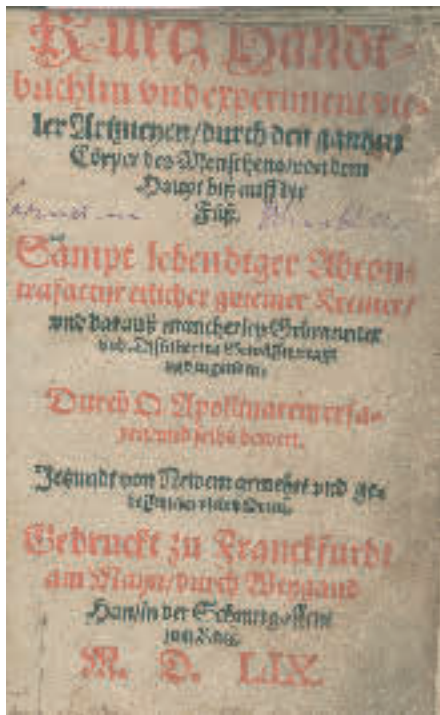 Kurtz Handt-
büchlin vnd experiment vie-
ler Artzneyen/durch den gantzen
Cörper des Menschens/von dem
Haupt biß auff die
Füß.
Sampt lebendiger Abcon-
trafactur etlicher gmeiner Kreuter/
vnd darauß mancherley Gebrannter
vnd Distillierter
Durch Q. Apollinarem erfa-
ren/vnd selbs bewert.
Jetzundt von Newem gemehrt vnd ge-
Gedruckt zu Franckfurdt
am Mayn/durch Weygand
Han/in der Schnurgassen
zum Krug.
M. D. LIX.